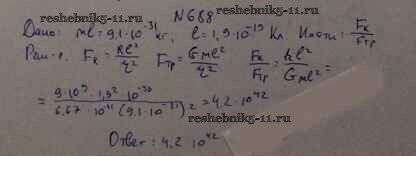 reshebniki-5-11.ru
N688
Дано: me = 9,1·10⁻³¹ кг, e = 1,9·10⁻¹⁹ Кл Найти: Fк/Fтр
Реш-е. Fк = ke²/r² Fтр = Gme²/r² Fк/Fтр = ke²/Gme² =
= 9·10⁹·1,9²·10⁻³⁸/6,67·10⁻¹¹(9,1·10⁻³¹)² = 4,2·10⁴²
reshebniki-5-11.ru
Ответ: 4,2·10⁴²